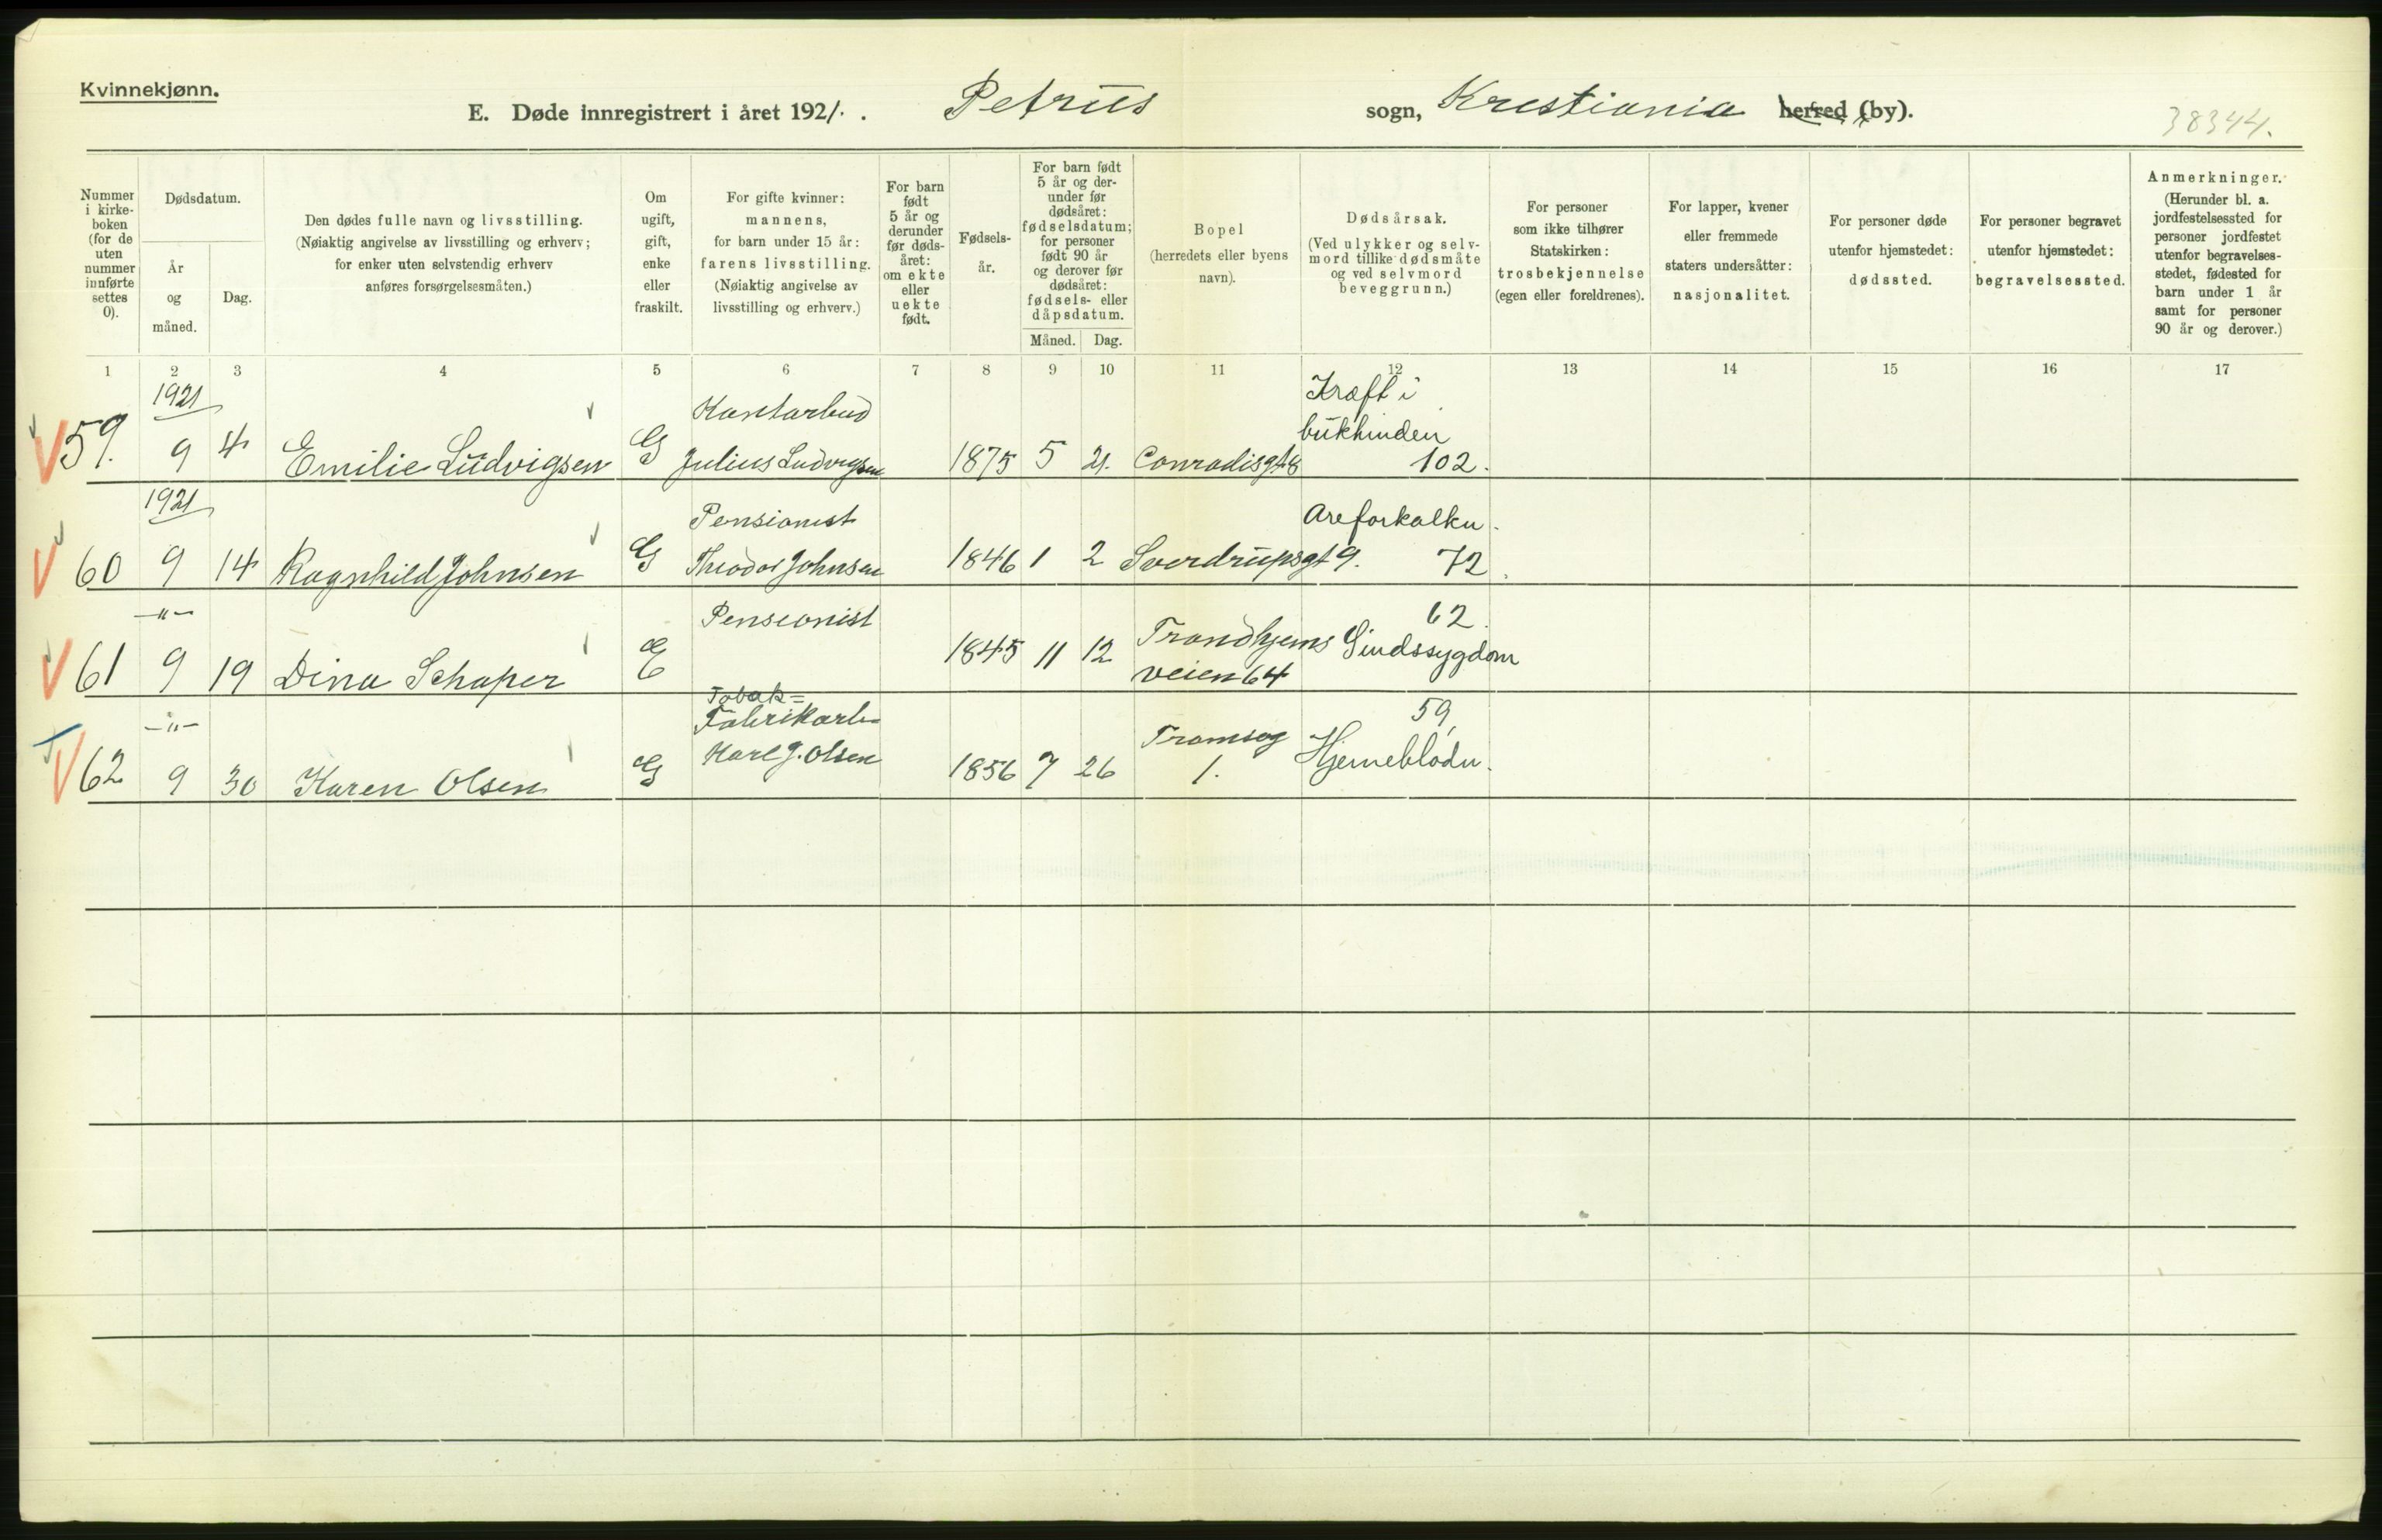 Kvinnekjønn.
E. Døde innregistrert i året 1921. Petrus sogn, Krestiania herred (by).
38344.
Nummer i kirke-boken (for de uten nummer innførte settes 0).
Dødsdatum.
År og måned.
Dag.
Den dødes fulle navn og livsstilling.
(Nøiaktig angivelse av livsstilling og erhverv;
for enker uten selvstendig erhverv
anføres forsørgelsesmåten.)
Om
ugift,
gift,
enke
eller
fraskilt.
For gifte kvinner:
mannens,
for barn under 15 år:
farens livsstilling.
(Nøiaktig angivelse av
livsstilling og erhverv.)
For barn
født
5 år og
derunder
før døds-
året:
om ekte
eller
uekte
født.
Fødsels-
år.
For barn født
5 år og der-
under før
dødsåret:
fødselsdatum;
for personer
født 90 år
og derover før
dødsåret:
fødsels- eller
dåpsdatum.
Måned. Dag.
Bopel
(herredets eller byens
navn).
Dødsårsak.
(Ved ulykker og selv-
mord tillike dødsmåte
og ved selvmord
beveggrunn.)
For personer
som ikke tilhører
Statskirken:
trosbekjennelse
(egen eller foreldrenes).
For lapper, kvener
eller fremmede
staters undersåtter:
nasjonalitet.
For personer døde
utenfor hjemstedet:
dødssted.
For personer begravet
utenfor hjemstedet:
begravelsessted.
Anmerkninger.
(Herunder bl. a.
jordfestelsessted for
personer jordfestet
utenfor begravelses-
stedet, fødested for
barn under 1 år
samt for personer
90 år og derover.)
1 2 3 4 5 6 7 8 9 10 11 12 13 14 15 16 17
1921 Kontorbud Kræft i
bukhinden
59. 9 4 Emilie Ludvigsen G Julius Ludvigsen 1875 5 21. Conradisgt 8 102.
1921 Pensionist Areforkalkn.
60 9 14 Ragnhild Johnsen G Theodor Johnsen 1846 1 2 Sverdrupsgt 9. 72.
-"- Pensionist 62.
61 9 19 Dina Schaper E 1845 11 12 Trondhjems Sindssygdom
veien 64
-"- Tobak=
Fabrikarb. 59,
62 9 30 Karen Olsen G Karl J. Olsen 1856 7 26 Tromsøg Hjerneblødn.
1.